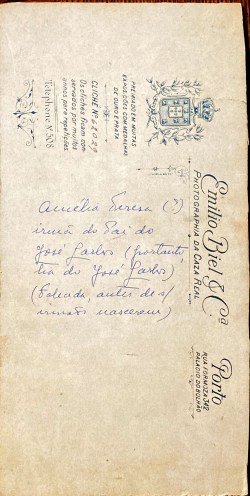 Emilio Biel & Cª
PHOTOGRAPHIA DA CAZA REAL
Porto
RUA FORMOZA 342
PALACIO DO BOLHÃO
PREMIADO EM MUITAS
EXPOSIÇÕES COM MEDALHAS
DE OURO E PRATA
CLICHÉ Nº 62029
Os clichés ficam con-
servados por muitos
annos para repetições.
Telephone Nº 508
Amélia Teresa (?)
irmã do Pai do
José Carlos (portanto
tia do José Carlos)
(Falecida antes de s/
nascerem)